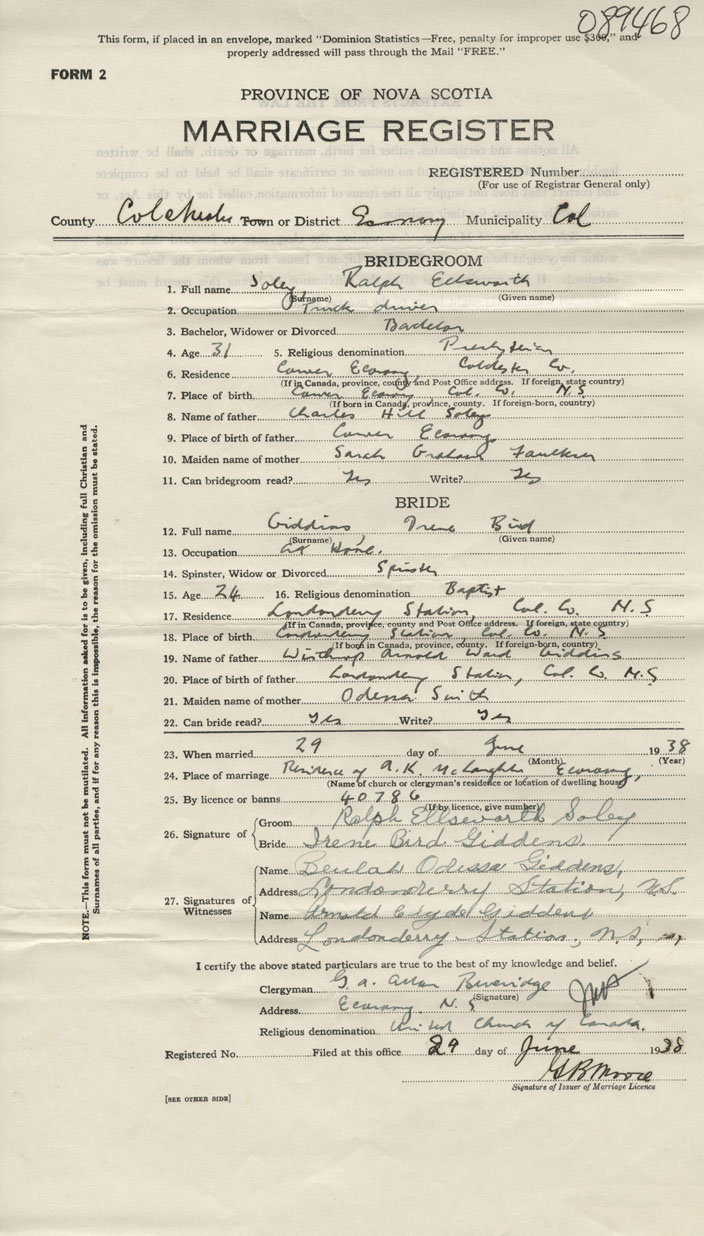 089468
This form, if placed in an envelope, marked "Dominion Statistics—Free, penalty for improper use $300," and
properly addressed will pass through the Mail "FREE."
FORM 2
PROVINCE OF NOVA SCOTIA
MARRIAGE REGISTER
REGISTERED Number
(For use of Registrar General only)
County Colchester Town or District Economy Municipality Col
BRIDEGROOM
1. Full name Soley Ralph Ellsworth
(Surname) (Given name)
2. Occupation Truck driver
3. Bachelor, Widower or Divorced Bachelor
4. Age 31 5. Religious denomination Presbyterian
6. Residence Lower Economy Colchester Co.
(If in Canada, province, county and Post Office address. If foreign, state country)
7. Place of birth Lower Economy Col. Co. N.S
(If born in Canada, province, county. If foreign-born, country)
8. Name of father Charles Hill Soley
9. Place of birth of father Lower Economy
10. Maiden name of mother Sarah Graham Faulkner
11. Can bridegroom read? Yes Write? Yes
BRIDE
12. Full name Giddins Irene Bird
(Surname) (Given name)
13. Occupation at Home.
14. Spinster, Widow or Divorced Spinster
15. Age 24 16. Religious denomination Baptist
17. Residence Londonderry Station, Col. Co. N.S
(If in Canada, province, county and Post Office address. If foreign, state country)
18. Place of birth Londonderry Station, Col. Co. N.S
(If born in Canada, province, county. If foreign-born, country)
19. Name of father Winthrop Arnold Ward Giddins
20. Place of birth of father Londonderry Station, Col. Co. N.S
21. Maiden name of mother Odessa Smith
22. Can bride read? Yes Write? Yes
23. When married 29 day of June 1938
(Month) (Year)
24. Place of marriage Residence of A.K. McLaughlin Economy,
(Name of church or clergyman's residence or location of dwelling house)
25. By licence or banns 40786
(If by licence, give number)
26. Signature of Groom Ralph Ellsworth Soley
Bride Irene Bird Giddens
27. Signatures of Witnesses
Name Beulah Odessa Giddens,
Address Londonderry Station, N.S.
Name Arnold Clyde Giddens
Address Londonderry Station, N.S,
I certify the above stated particulars are true to the best of my knowledge and belief.
Clergyman G. A. Allan Beveridge
(Signature)
Address Economy N.S
Religious denomination United Church of Canada.
Registered No. Filed at this office 29 day of June 1938
G B Moore
Signature of Issuer of Marriage Licence
[SEE OTHER SIDE]
NOTE.—This form must not be mutilated. All information asked for is to be given, including full Christian and
Surnames of all parties, and if for any reason this is impossible, the reason for the omission must be stated.